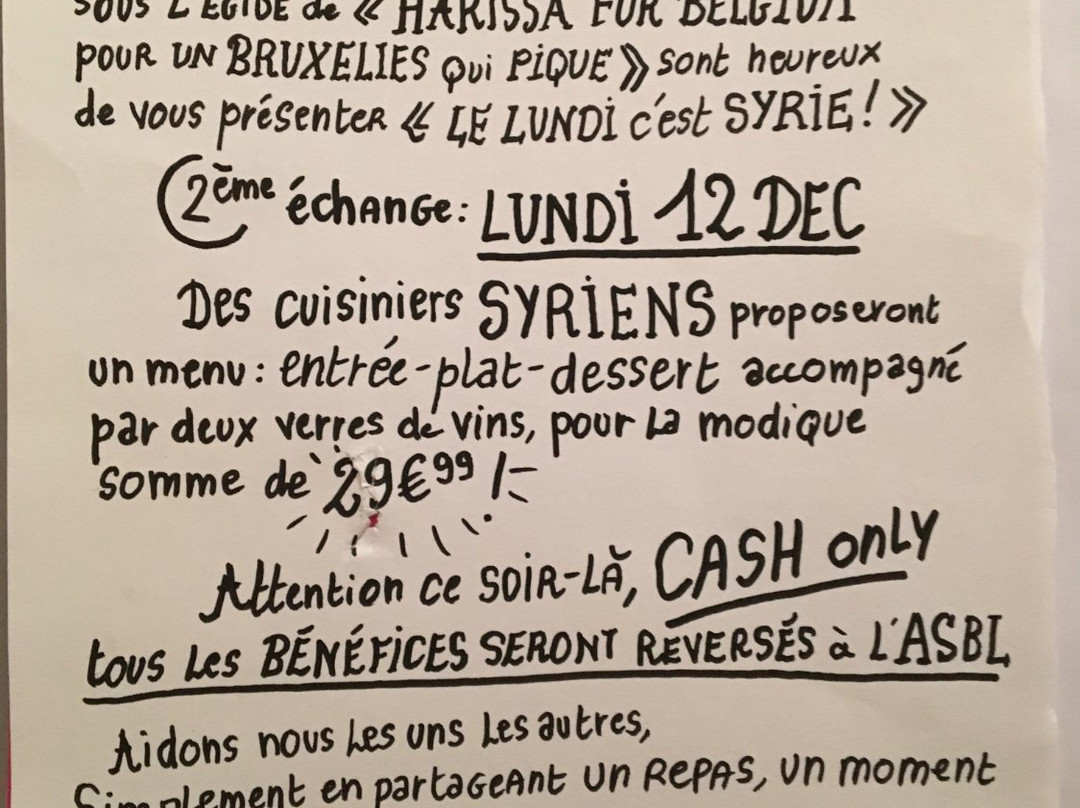 SOUS L'ÉGIDE de « HARISSA FOR BELGIUM
POUR UN BRUXELLES Qui PIQUE » sont heureux
de vous présenter « LE LUNDI c'est SYRIE! »
2ème échange: LUNDI 12 DEC
Des cuisiniers SYRIENS proposeront
un menu: entrée-plat-dessert accompagné
par deux verres de vins, pour la modique
somme de 29€99
Attention ce SOIR-LÀ, CASH only
tous les BÉNÉFICES SERONT REVERSÉS à L'ASBL
Aidons nous les uns les autres,
Simplement en partageant un REPAS, un moment